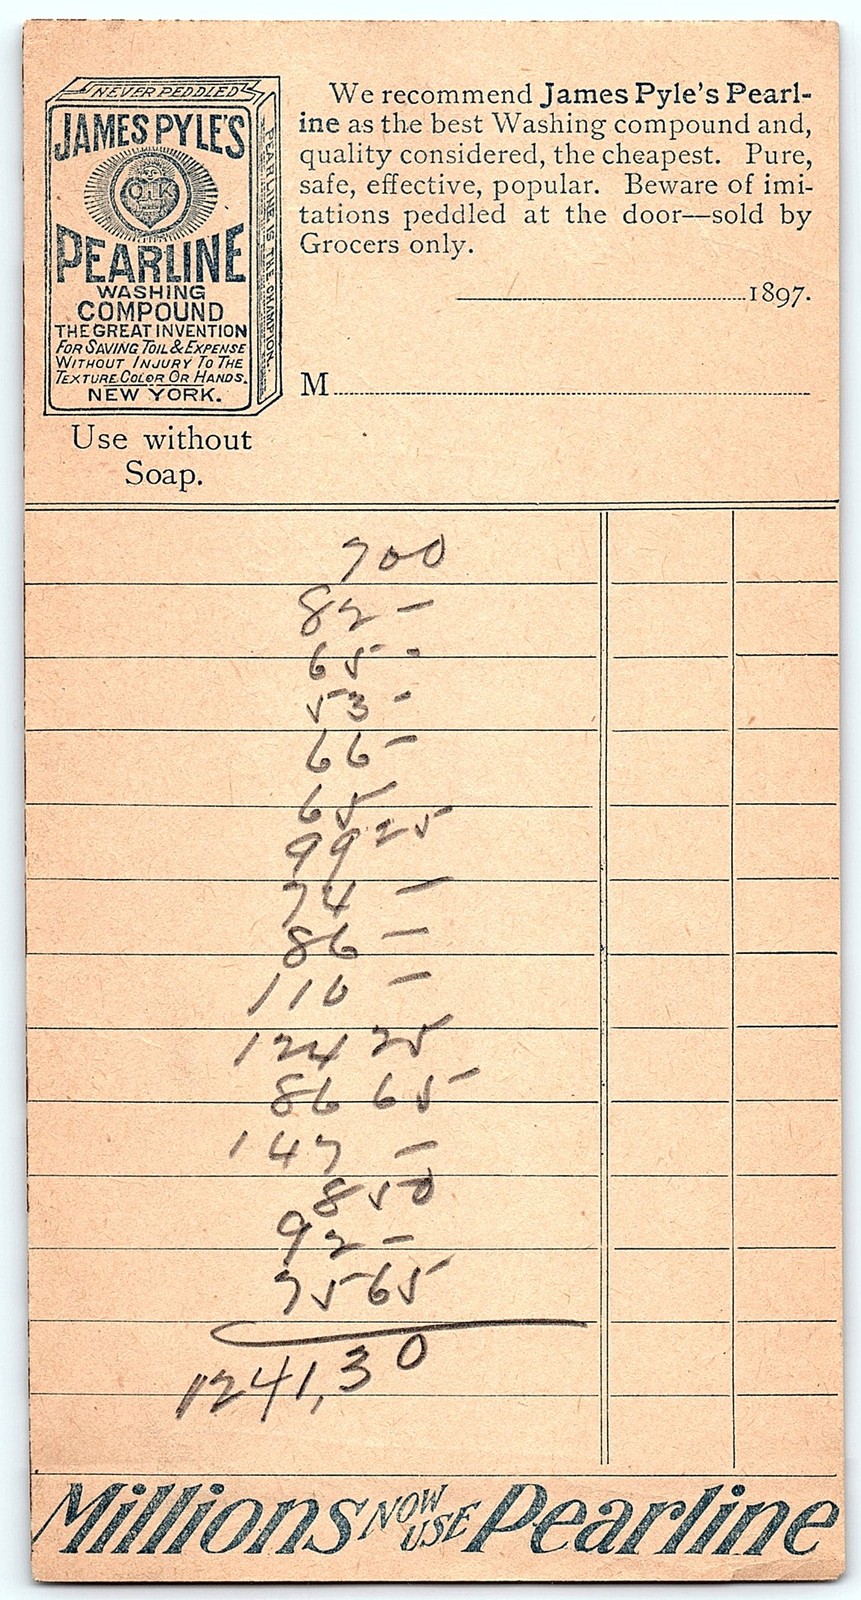 NEVER PEDDLED
JAMES PYLE'S
O.K
PEARLINE
WASHING
COMPOUND
THE GREAT INVENTION
FOR SAVING TOIL & EXPENSE
WITHOUT INJURY TO THE
TEXTURE, COLOR OR HANDS.
NEW YORK.
PEARLINE IS THE CHAMPION.
Use without
Soap.
We recommend James Pyle's Pearl-
ine as the best Washing compound and,
quality considered, the cheapest. Pure,
safe, effective, popular. Beware of imi-
tations peddled at the door—sold by
Grocers only.
1897.
M
700
82 -
65 -
53 -
66 -
65
99 25
74 -
86 -
110 -
124 25
86 65
147 -
8 50
92 -
75 65
1241,30
Millions NOW USE Pearline